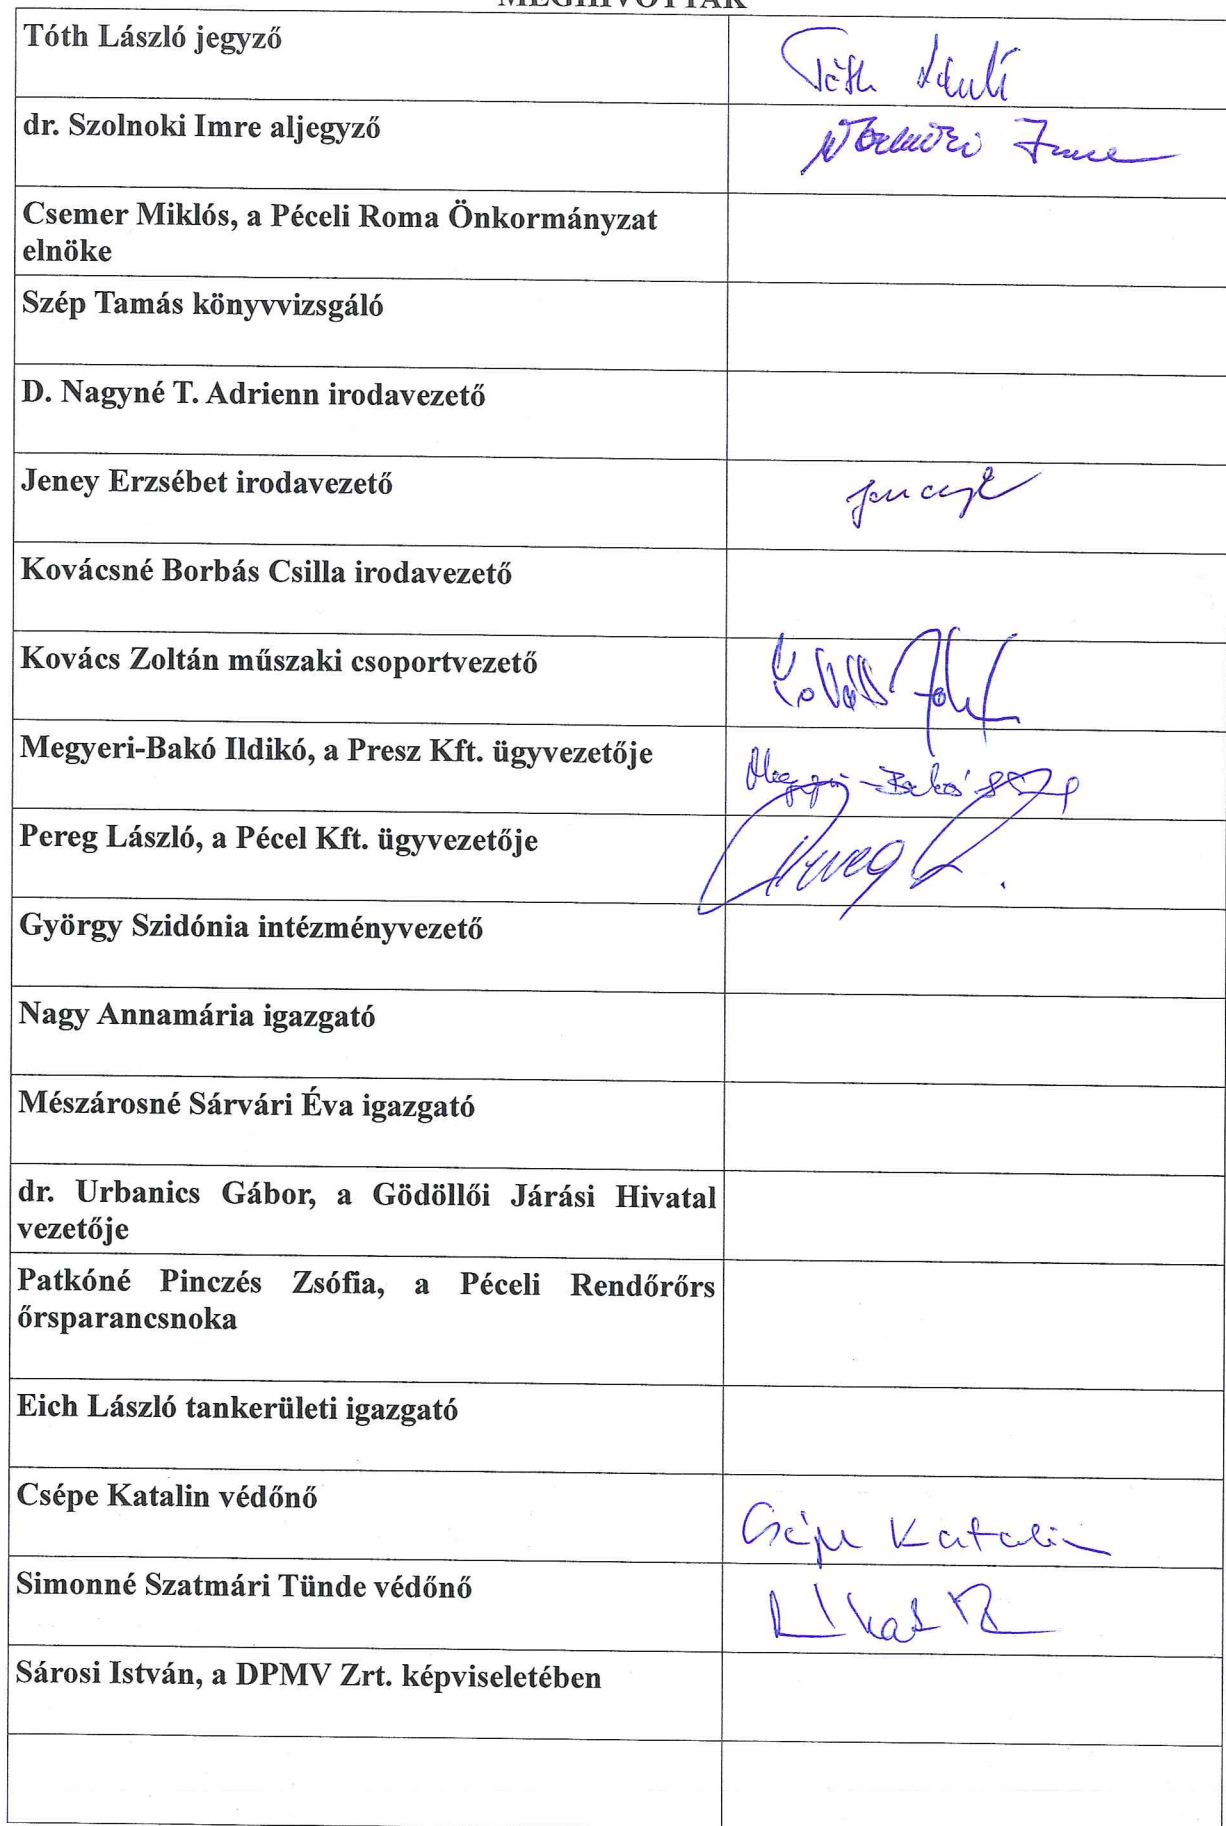 MEGHÍVOTTAK
Tóth László jegyző
Tóth László
dr. Szolnoki Imre aljegyző
Szolnoki Imre
Csemer Miklós, a Péceli Roma Önkormányzat
elnöke
Szép Tamás könyvvizsgáló
D. Nagyné T. Adrienn irodavezető
Jeney Erzsébet irodavezető
Kovácsné Borbás Csilla irodavezető
Kovács Zoltán műszaki csoportvezető
Kovács
Megyeri-Bakó Ildikó, a Presz Kft. ügyvezetője
Megyeri-Bakó
Pereg László, a Pécel Kft. ügyvezetője
Pereg L.
György Szidónia intézményvezető
Nagy Annamária igazgató
Mészárosné Sárvári Éva igazgató
dr. Urbanics Gábor, a Gödöllői Járási Hivatal
vezetője
Patkóné Pinczés Zsófia, a Péceli Rendőrőrs
őrsparancsnoka
Eich László tankerületi igazgató
Csépe Katalin védőnő
Csépe Katalin
Simonné Szatmári Tünde védőnő
Sárosi István, a DPMV Zrt. képviseletében